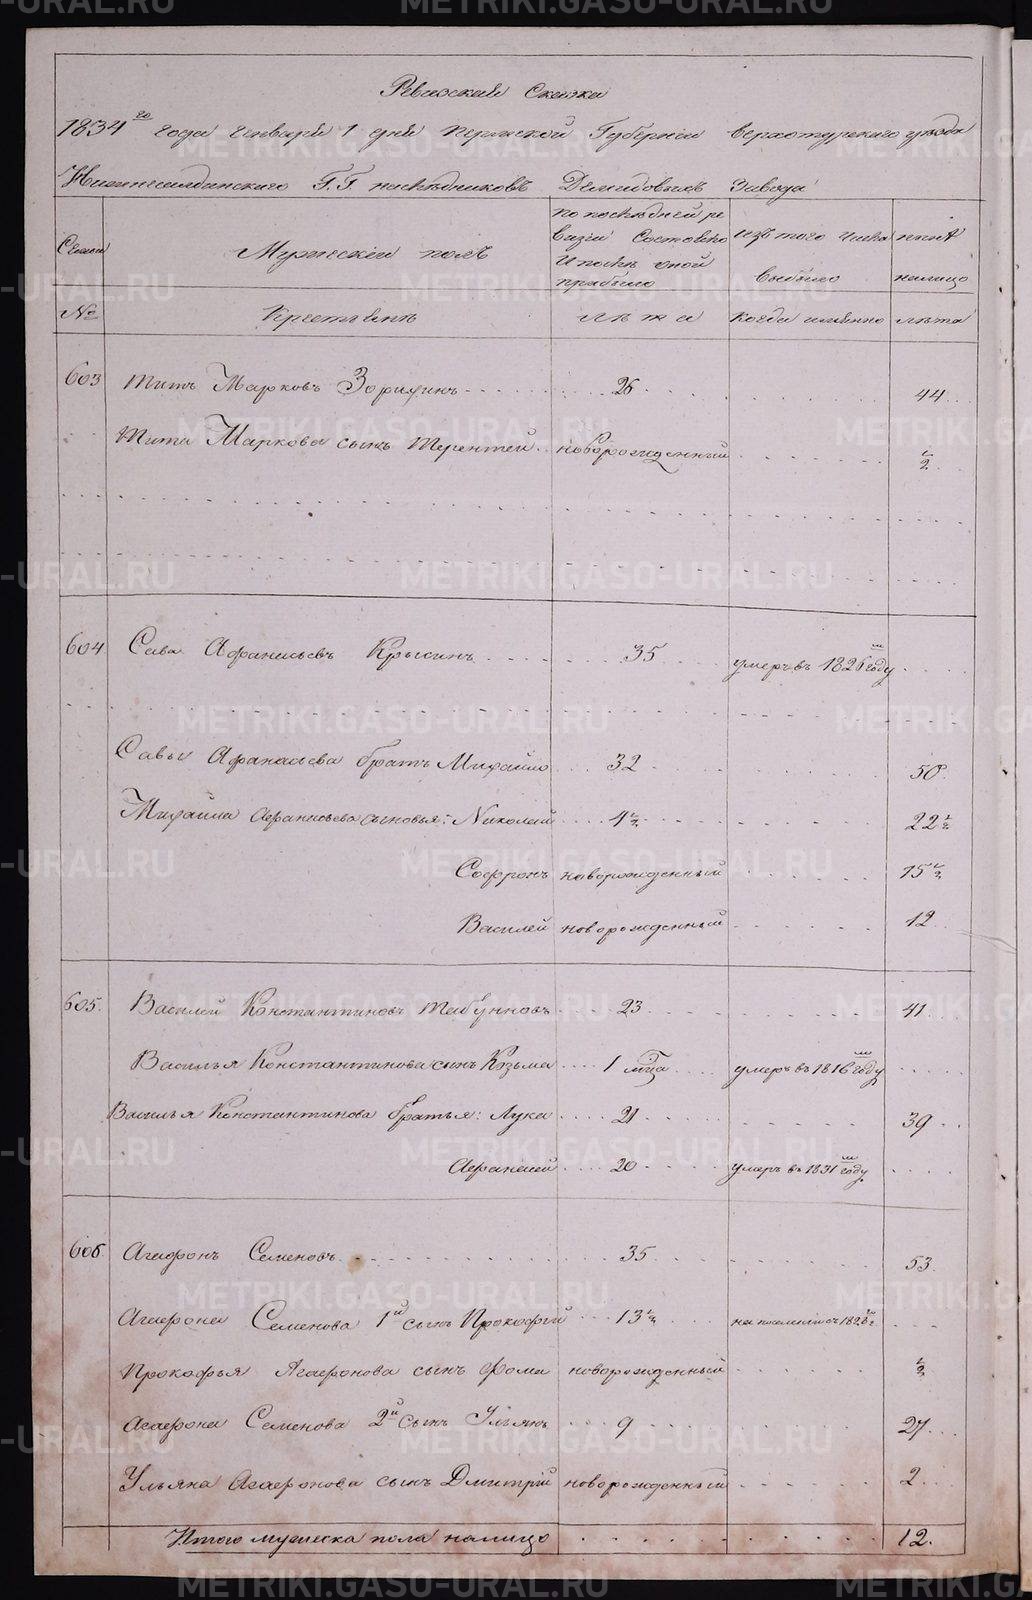 Ревизская Сказка
1834го года Генваря 1 дня Пермской Губернии Верхотурского уезда
Нижнесалдинскаго Г.Г. наследниковъ Демидовыхъ Завода
Семьи
Мужескiй полъ
По последней ре
визiи Состояло
И после оной
прибыло
Изъ того числа
выбыло
ныне
налицо
№
Крестьянъ
лета
Когда именно
лета
603 Титъ Марковъ Зорихинъ 26 44
Тита Маркова сынъ Терентей новорожденный ½
604 Сава Афанасьевъ Крысинъ 35 умеръ въ 1826м году
Савы Афанасьева братъ Михайло 32 50
Михайла Афанасьева сыновья: Николай 4½ 22½
Софронъ новорожденный 15½
Василей новорожденный 12
605. Василей Константиновъ Табунновъ 23 41
Василья Константинова сынъ Козьма 1 мца умеръ въ 1816м году
Василья Константинова братья: Лука 21 39
Афанасей 20 умеръ въ 1831м году
606 Агафонъ Семеновъ 35 53
Агафона Семенова 1й сынъ Прокофiй 13½ на поселенiе въ 1826м г.
Прокофья Агафонова сынъ Фома новорожденный ½
Агафона Семенова 2й сынъ Ульянъ 9 27
Ульяна Агафонова сынъ Дмитрiй новорожденный 2
Итого мужеска пола налицо 12.
METRIKI.GASO-URAL.RU